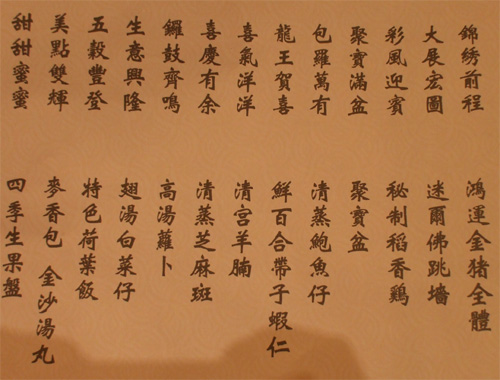 錦綉前程 鴻運金猪全體
大展宏圖 迷爾佛跳墻
彩風迎賓 秘制稻香鷄
聚寶滿盆 聚寶盆
包羅萬有 清蒸鮑魚仔
龍王賀喜 鮮百合帶子蝦仁
喜氣洋洋 清宮羊腩
喜慶有余 清蒸芝麻斑
鑼鼓齊鳴 高湯蘿卜
生意興隆 翅湯白菜仔
五穀豐登 特色荷葉飯
美點雙輝 麥香包 金沙湯丸
甜甜蜜蜜 四季生果盤